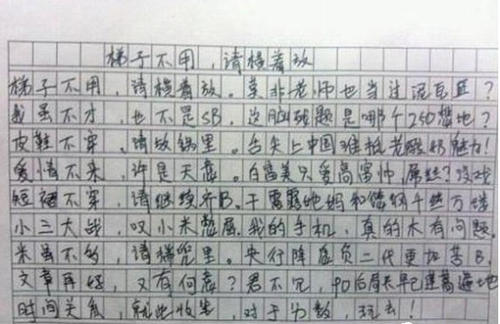 梯子不用,请横着放
梯子不用,请横着放。莫非老师也当过泥瓦匠?
我虽不才,也不是SB,这脑残题是哪个250想地?
皮鞋不穿,请放锅里。当失上中国难抵老酸奶魅力!
爱情不来,许是天意。白富美只爱高富帅,屌丝?没戏
短裙不穿,请继续齐B。干露露她妈和
小三大战,叹小米憋屈。我的手机,真的木有问题。
米虽不多,请揣兜里。央行降息负二代更加苦B.
文章再好,又有何意?君不见,90后局长早已遍地
时间关系,就此收笔,对于分数,玩去!